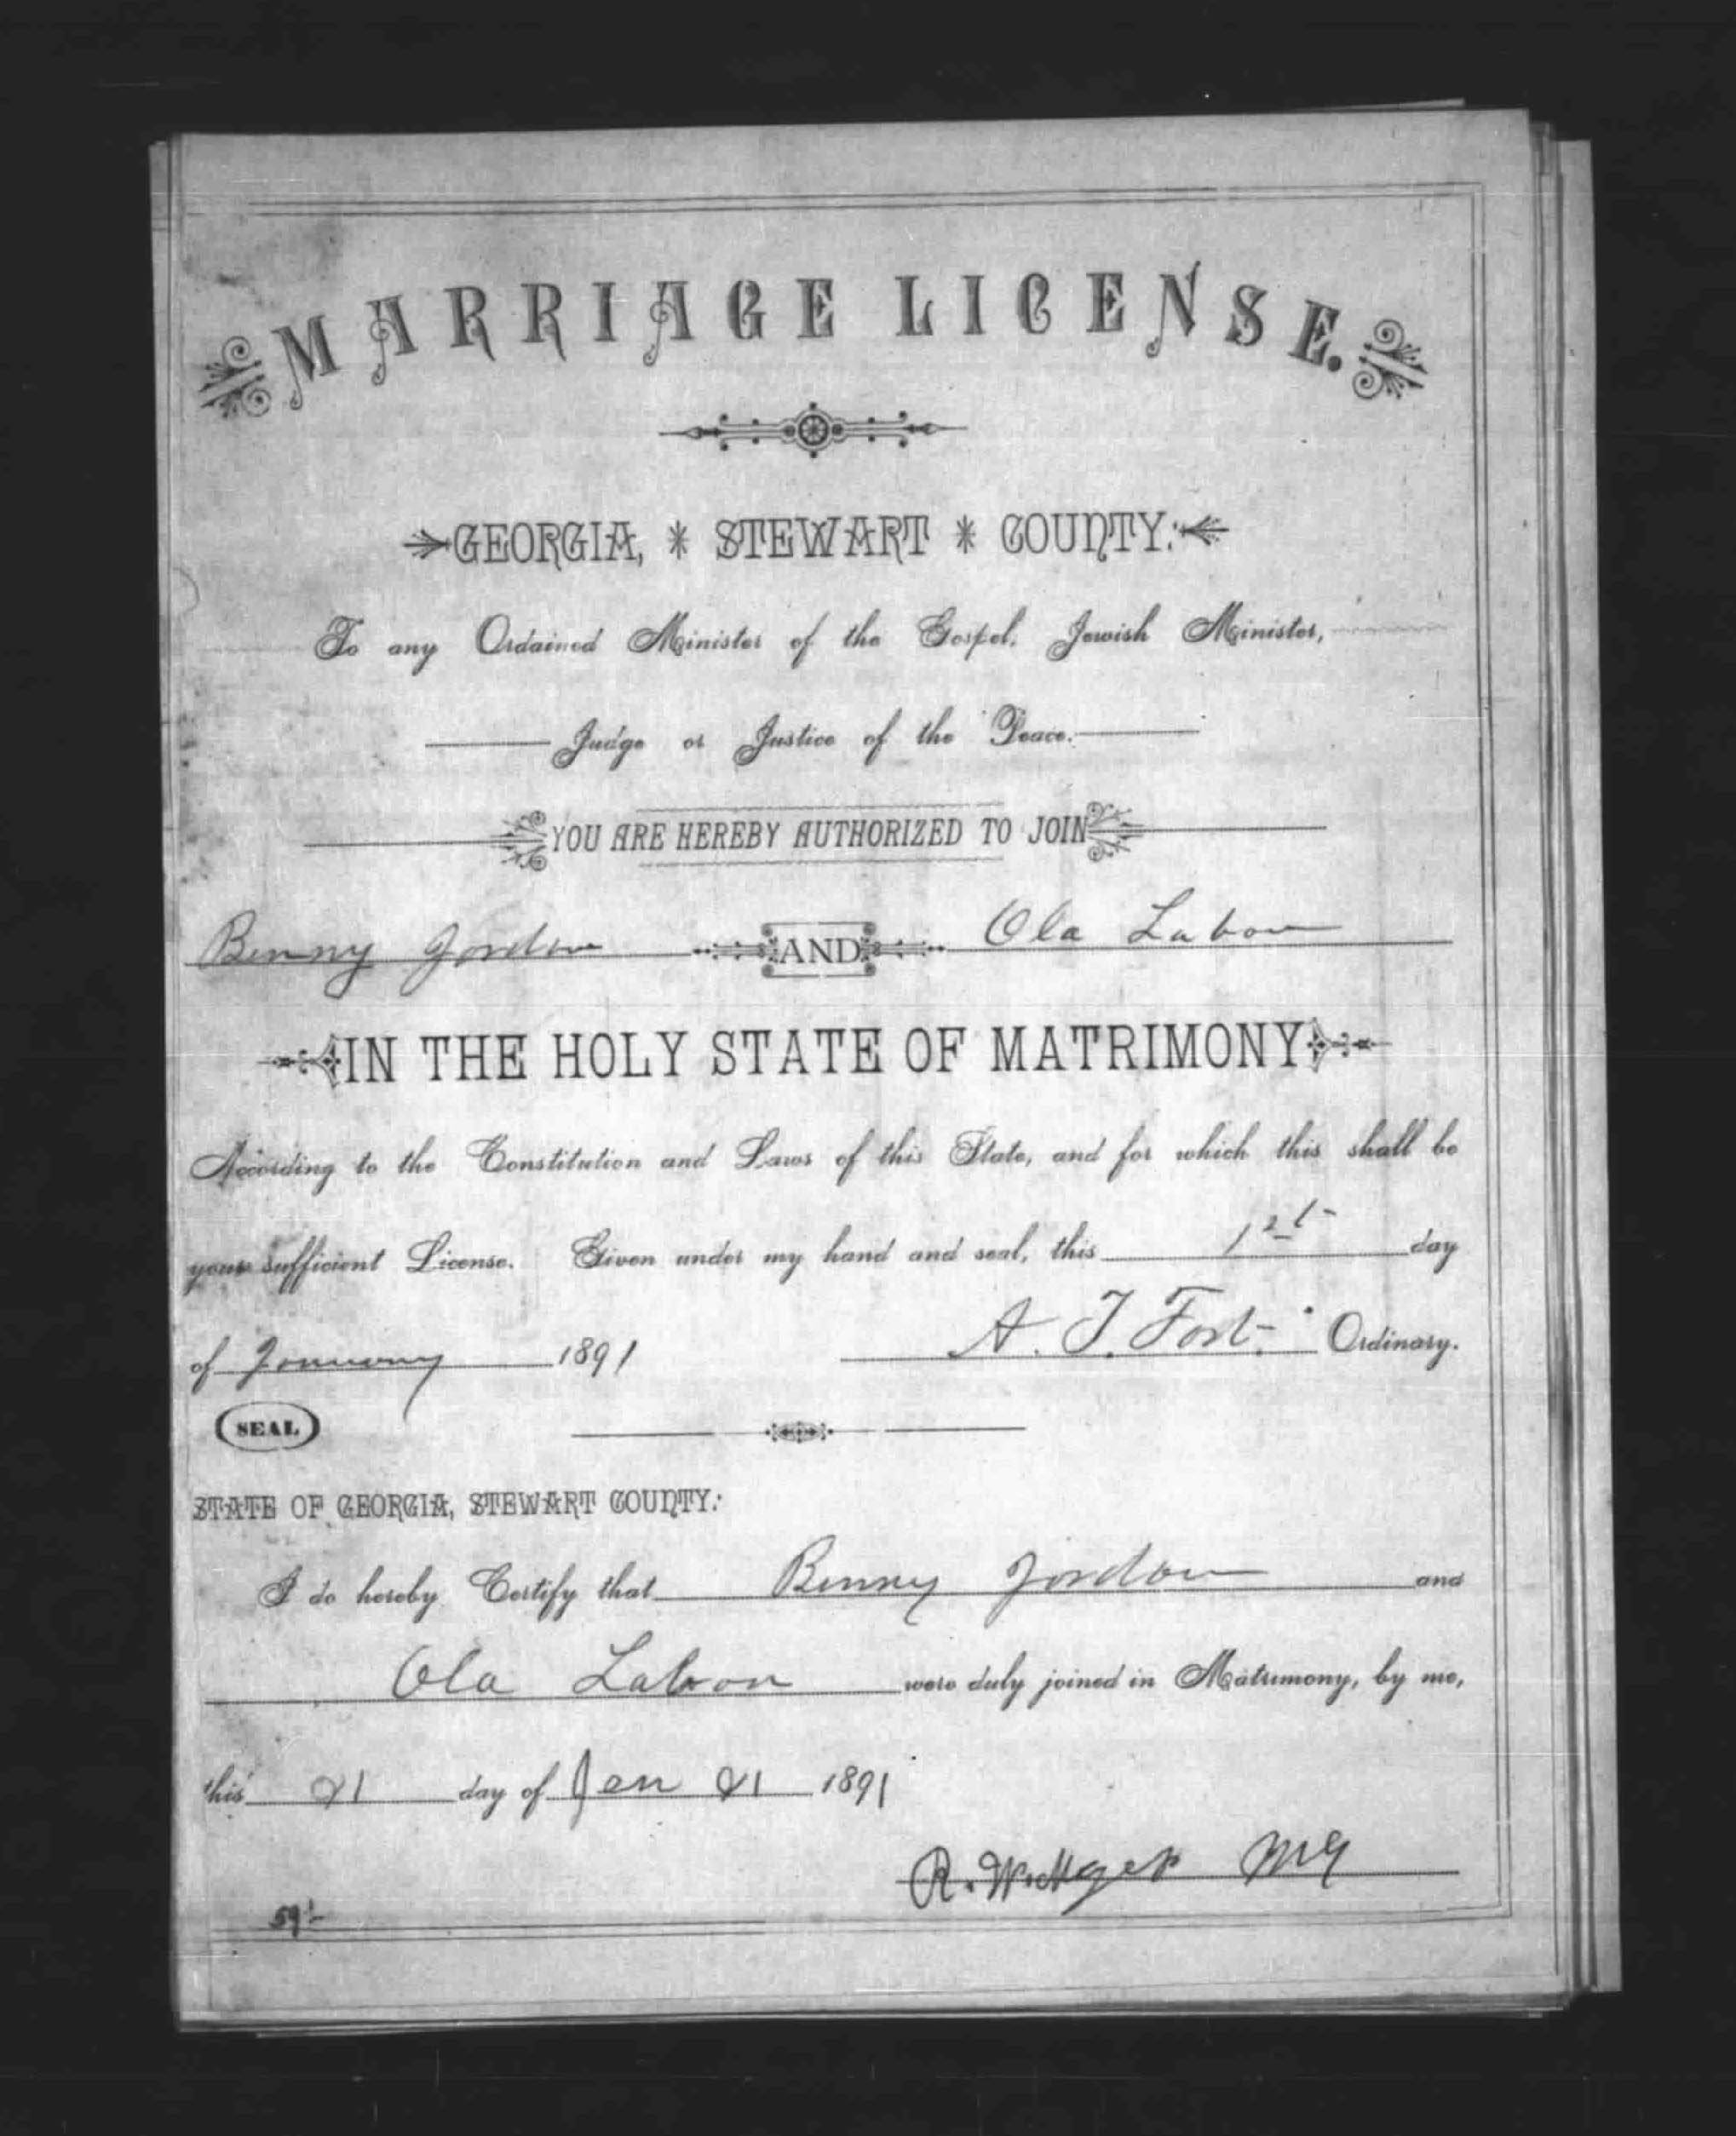 MARRIAGE LICENSE.
GEORGIA, * STEWART * COUNTY:
To any Ordained Minister of the Gospel, Jewish Minister,
Judge or Justice of the Peace.
YOU ARE HEREBY AUTHORIZED TO JOIN
Benny Jordan AND Ola Labon
IN THE HOLY STATE OF MATRIMONY
According to the Constitution and Laws of this State, and for which this shall be
your sufficient License. Given under my hand and seal, this 1st day
of January 1891 A. T. Fort Ordinary.
SEAL
STATE OF GEORGIA, STEWART COUNTY:
I do hereby Certify that Benny Jordan and
Ola Labon were duly joined in Matrimony, by me,
this 21 day of Jan 21 1891
R. MG
59